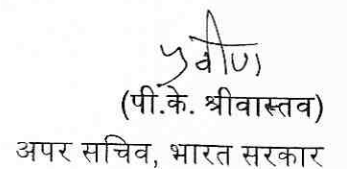 प्रवीण
(पी.के. श्रीवास्तव)
अपर सचिव, भारत सरकार